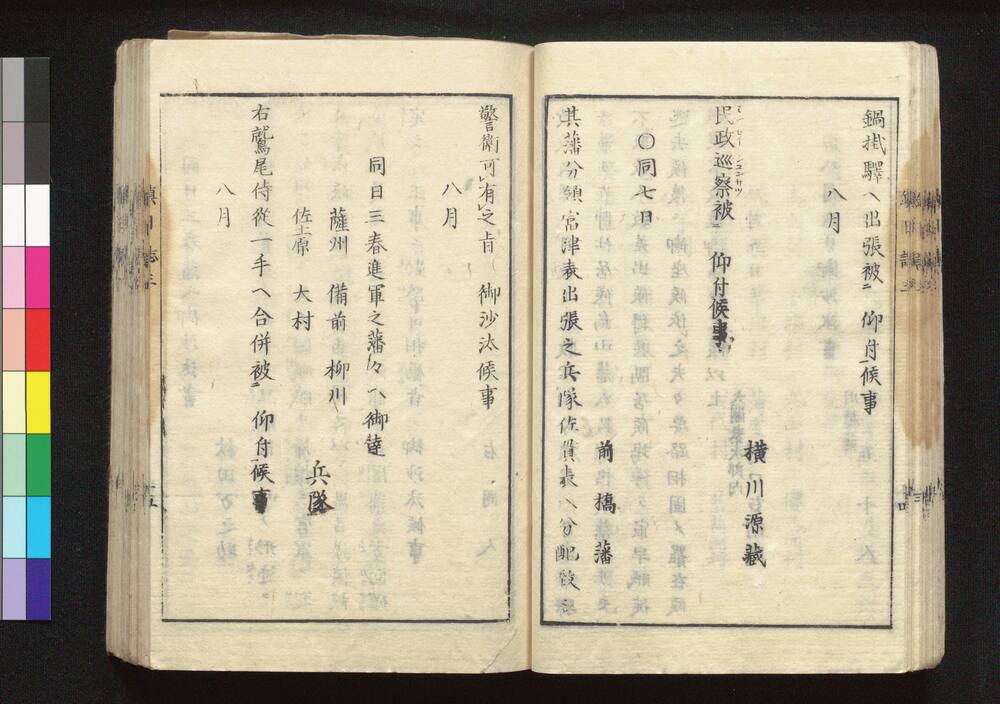 鍋掛驛ヘ出張被ニ仰付候事
八月
横川源藏
民政巡察被ニ仰付候事
ミンセージュンサツ
〇同七日
前橋藩
其藩分領富津表出張之兵隊佐貫表ヘ分配致シ
警衛可レ有レ之旨御沙汰候事
八月
同日三春進軍之藩々ヘ御達
薩州 備前 柳川
佐土原 大村
兵隊
右鷲尾侍從一手ヘ合併被ニ仰付候事
八月